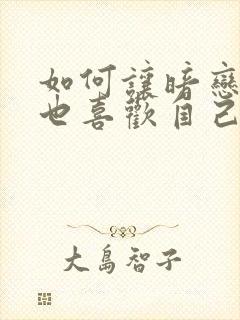 如何讓暗戀
也喜歡自己
大島智子